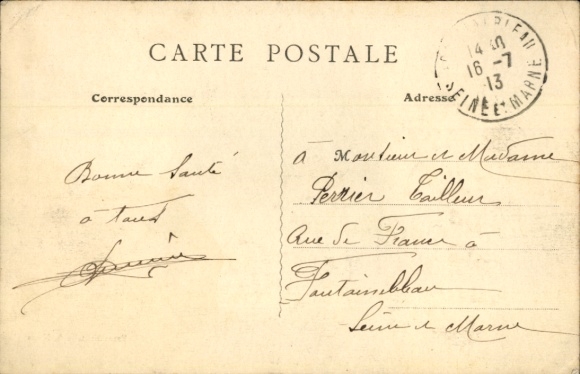 CARTE POSTALE
Correspondance
Adresse
14 30
16 -7
13
SEINE ET MARNE
Bonne Santé
à tous
à Monsieur et Madame
Perrier Tailleur
Rue de France à
Fontainebleau
Seine et Marne